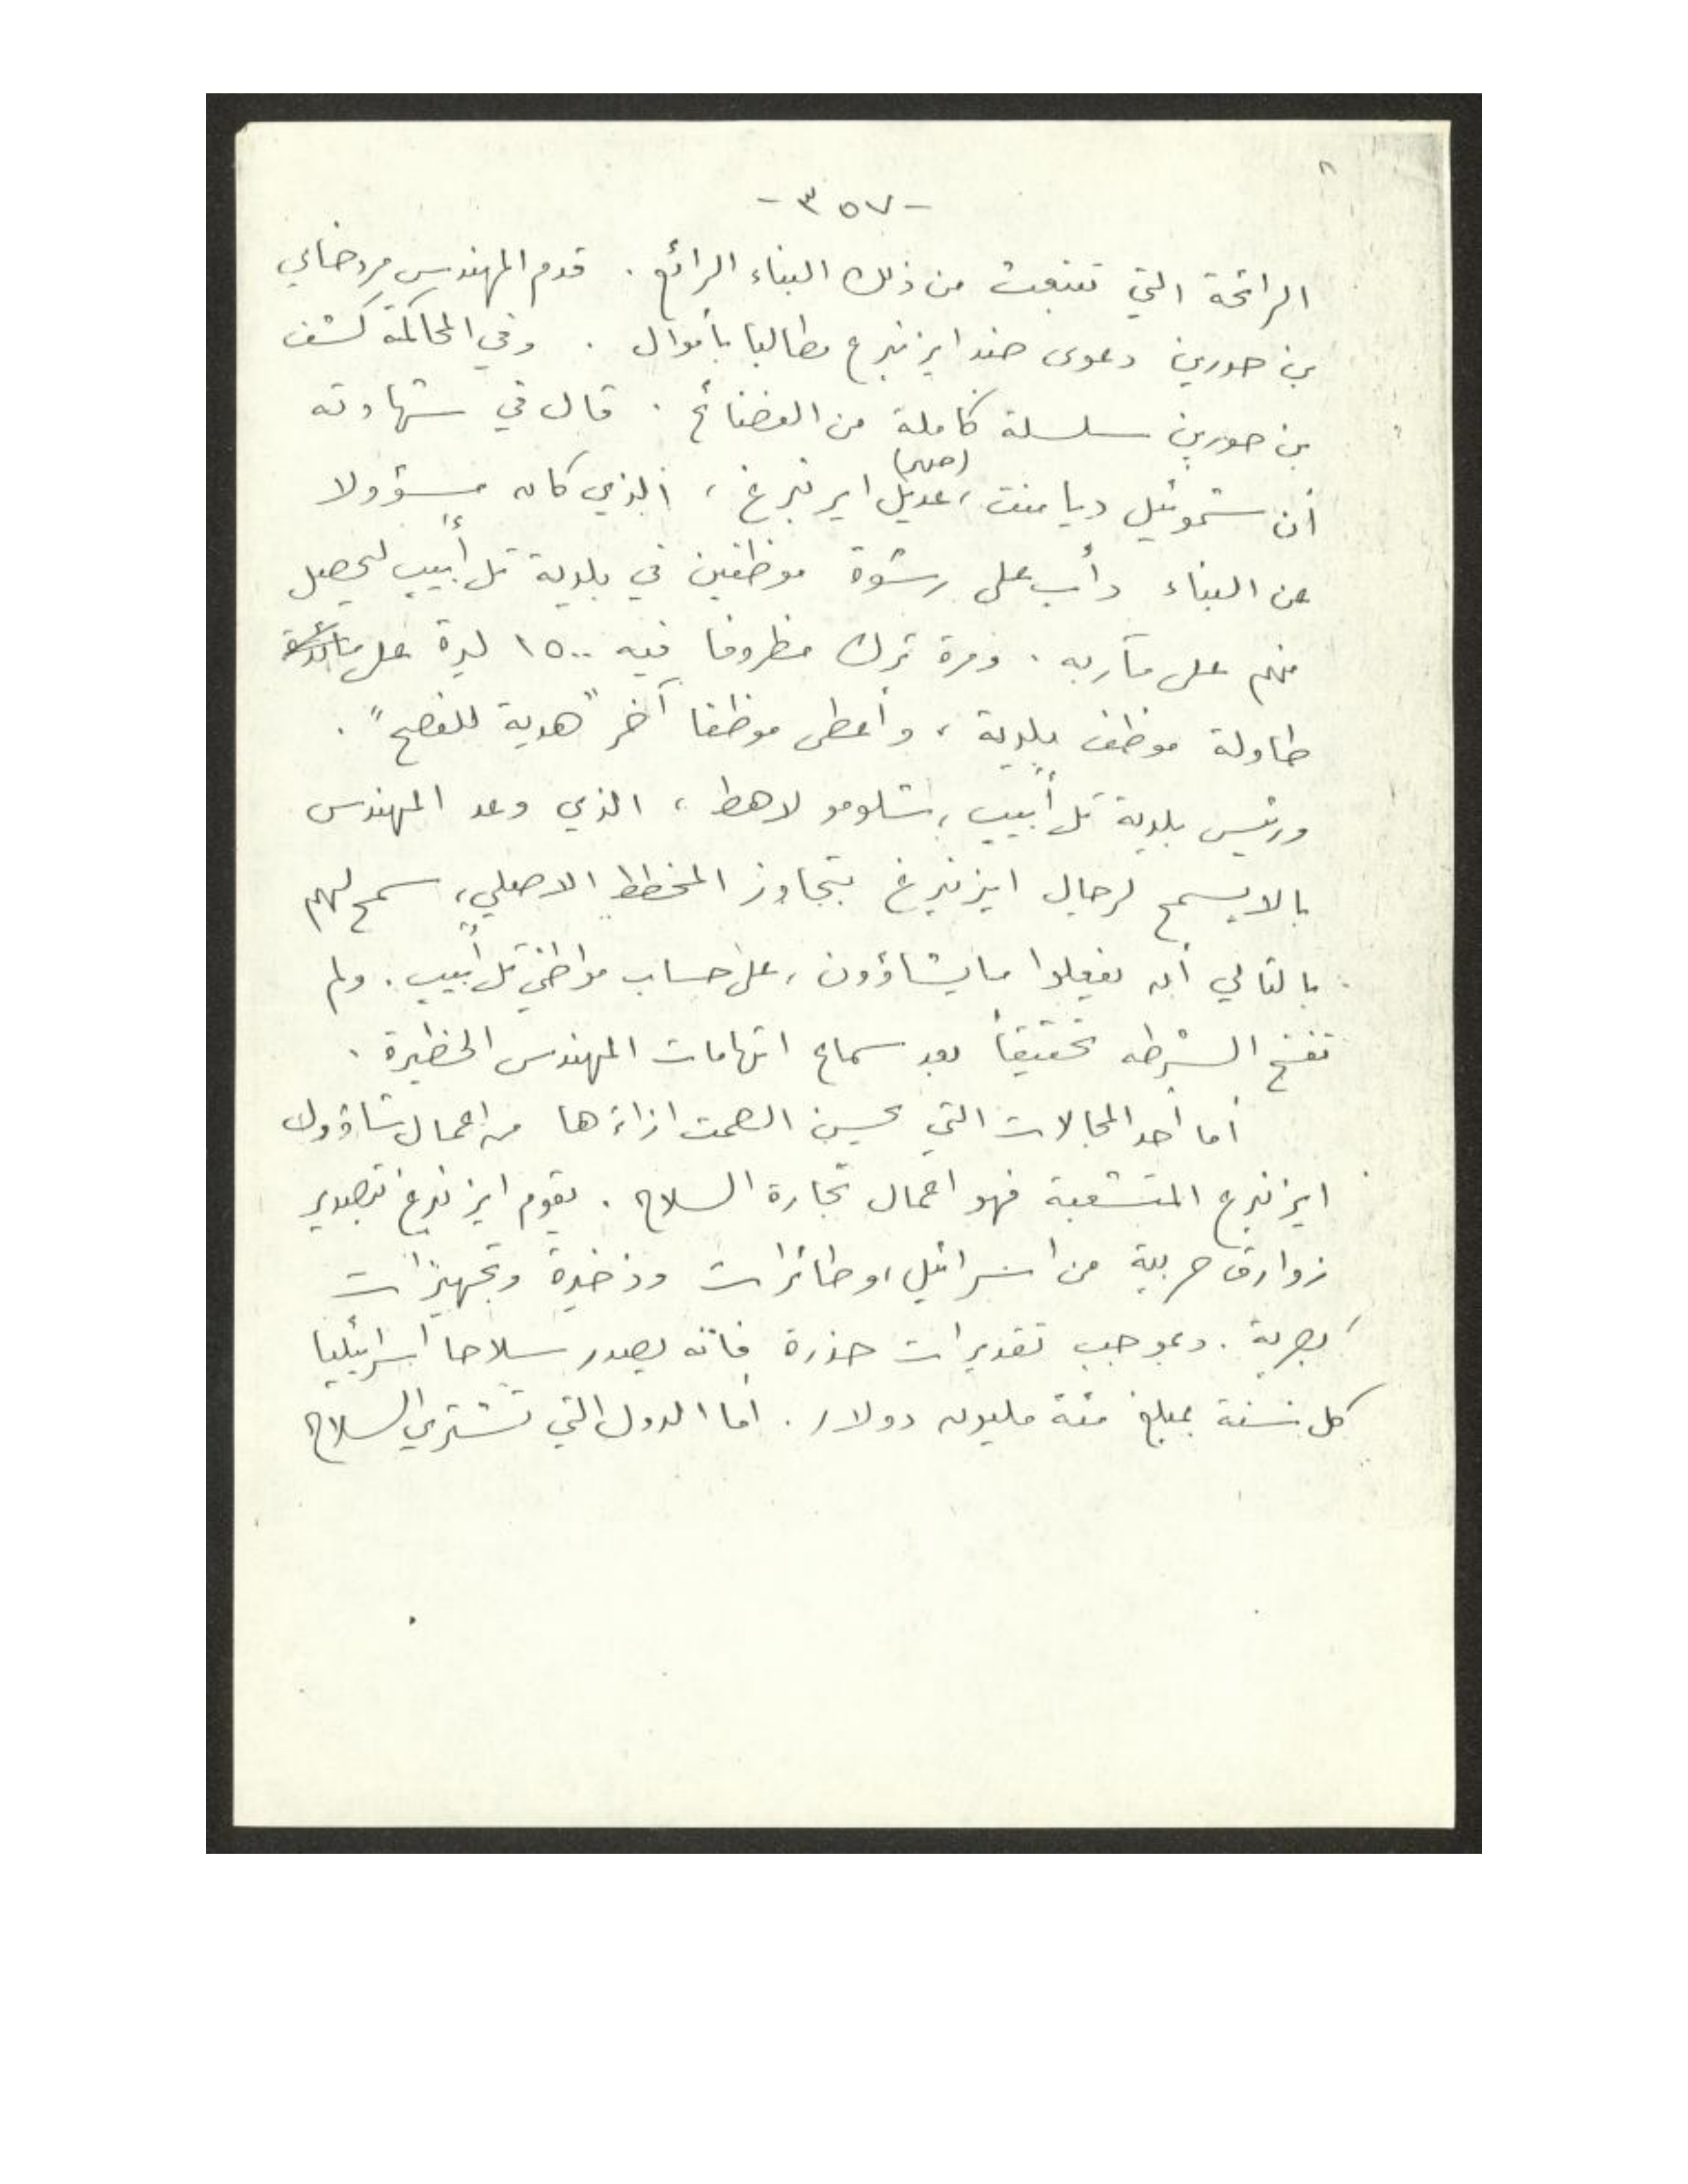 - ٣٥٧ -
الرائحة التي تنبعث من ذلك البناء الرائع . قدم المهندس مردخاي
بن حورين دعوى ضد ايزنبرغ مطالبا بأموال . وفي المحاكمة كشف
بن حورين سلسلة كاملة من الفضائح . قال في شهادته
(صهر)
أن شموئيل ديامنت ، عديل ايزنبرغ ، الذي كان مسؤولا
عن البناء دأب على رشوة موظفين في بلدية تل أبيب ليحصل
منهم على مآربه . ومرة ترك مظروفا فيه ١٥٠٠ ليرة على
طاولة موظف بلدية ، وأعطى موظفا آخر "هدية للفصح" .
ورئيس بلدية تل أبيب ، شلومو لاهط ، الذي وعد المهندس
بالا يسمح لرجال ايزنبرغ بتجاوز المخطط الاصلي ، سمح لهم
بالتالي أن يفعلوا ما يشاؤون ، على حساب مواطني تل أبيب . ولم
تفتح الشرطه تحقيقاً بعد سماع اتهامات المهندس الخطيرة .
أما أحد المجالات التي يحسن الصمت ازاءها من اعمال شاؤول
ايزنبرغ المتشعبة فهو اعمال تجارة السلاح . يقوم ايزنبرغ بتصدير
زوارق حربية من اسرائيل ، وطائرات وذخيرة وتجهيزات
بصرية . وبموجب تقديرات حذرة فانه يصدر سلاحا اسرائيليا
كل سنة بمبلغ مئة مليون دولار . أما الدول التي تشتري السلاح